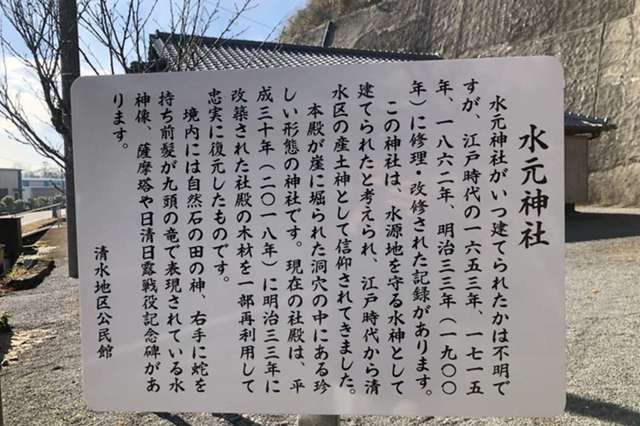 水元神社
水元神社がいつ建てられたかは不明で
すが、江戸時代の一六五三年、一七一五
年、一八六二年、明治三三年（一九〇〇
年）に修理・改修された記録があります。
この神社は、水源地を守る水神として
建てられたと考えられ、江戸時代から清
水区の産土神として信仰されてきました。
本殿が崖に堀られた洞穴の中にある珍
しい形態の神社です。現在の社殿は、平
成三十年（二〇一八年）に明治三三年に
改築された社殿の木材を一部再利用して
忠実に復元したものです。
境内には自然石の田の神、右手に蛇を
持ち前髪が九頭の竜で表現されている水
神像、薩摩塔や日清日露戦役記念碑があ
ります。
清水地区公民館